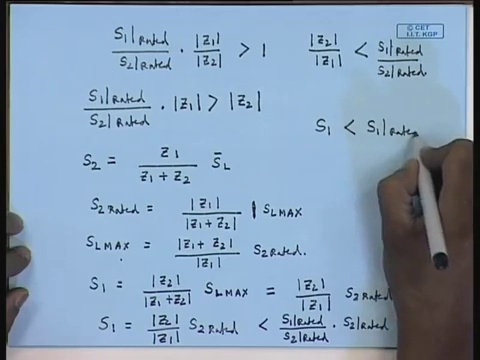 © CET
I.I.T. KGP
S₁|Rated / S₂|Rated · |Z₁| / |Z₂| > 1
|Z₂| / |Z₁| < S₁|Rated / S₂|Rated.
S₁|Rated / S₂|Rated · |Z₁| > |Z₂|
S₁ < S₁|Rate
S₂ = Z₁ / Z₁ + Z₂ S̄L
S₂ Rated = |Z₁| / |Z₁ + Z₂| |SLMAX
SLMAX = |Z₁ + Z₂| / |Z₁| S₂Rated.
S₁ = |Z₂| / |Z₁+Z₂| SLMAX = |Z₂| / |Z₁| S₂Rated
S₁ = |Z₂| / |Z₁| S₂Rated < S₁|Rated / S₂|Rated · S₂|Rated